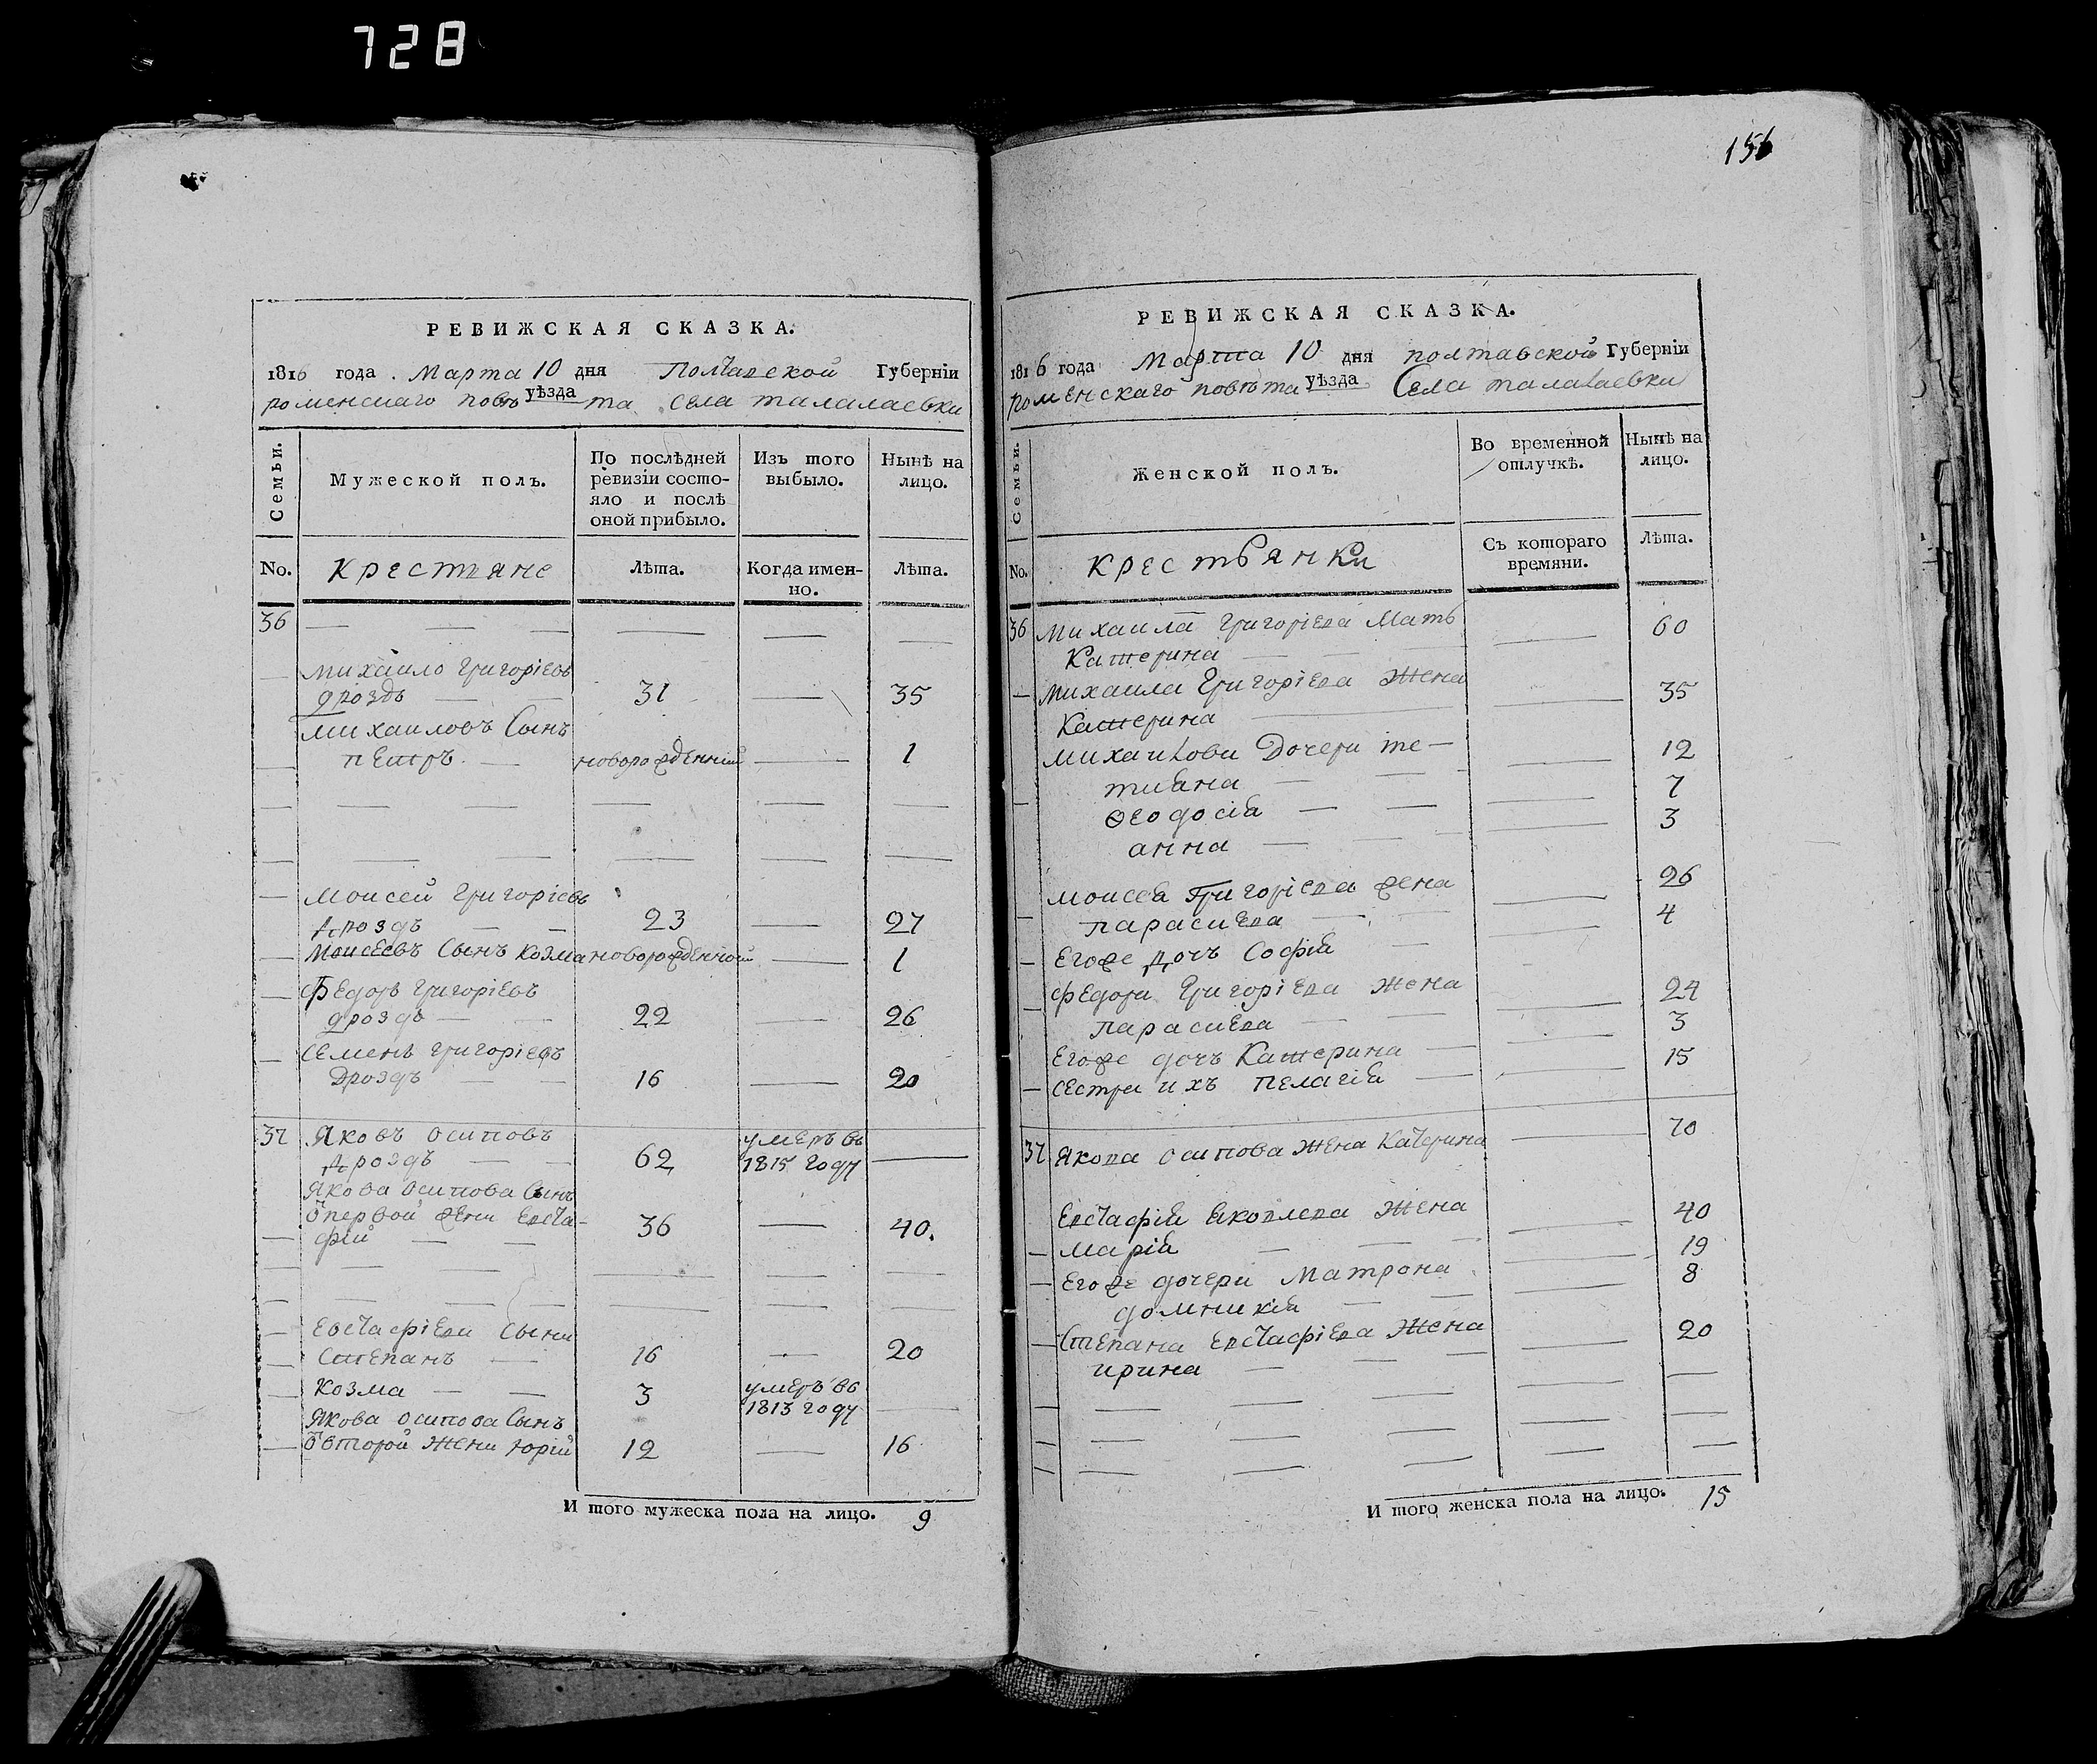 728
156
РЕВИЖСКАЯ СКАЗКА.
1816 года. Марта 10 дня Полтавской Губерніи
роменскаго повѣ уѣзда та села талалаевки
Семьи.
Мужеской полъ.
По послѣдней
ревизіи состо-
яло и послѣ
оной прибыло.
Изъ того
выбыло.
Нынѣ на
лицо.
No. Крестяне Лѣта. Когда имен- Лѣта.
но.
36
михаило григоріевъ
дроздъ 31 35
михаиловъ Сынъ
петръ новорожденній 1
моисей григоріевъ
дроздъ 23 27
Моисеевъ Сынъ Козма новорожденній 1
Федоръ григоріевъ
дроздъ 22 26
Семенъ григоріевъ
Дроздъ 16 20
37 Яковъ осиповъ умеръ въ
дроздъ 62 1815 году
Якова осипова Сынъ
ѿ первой жени Евста-
фій 36 40.
Евстафіеви сыни
Степанъ 16 20
Козма 3 умеръ въ
1813 году
Якова осипова Сынъ
ѿ второй жени юрій 12 16
И того мужеска пола на лицо. 9
РЕВИЖСКАЯ СКАЗКА.
1816 года Марта 10 дня полтавской Губерніи
роменскаго повѣта уѣзда Села талалаевки
Семьи.
Женской полъ.
Во временной
отлучкѣ.
Нынѣ на
лицо.
No. Крестьянки Съ котораго Лѣта.
времяни.
36 Михаила григоріева Мать 60
Катерина
михаила григоріева Жена 35
Катерина
михаилови Дочери те- 12
тияна 7
Ѳеодосія 3
анна
моисея григоріева жена 26
параскева 4
Егоже дочъ Софія
федора григоріева жена 24
параскева 3
Егоже дочъ Катерина 15
сестра ихъ пелагія
37 Якова осипова жена Катерина 70
Евстафія яковлева жена 40
Марія 19
Егоже дочери Матрона 8
домникія
Степана Евстафіева Жена 20
ирина
И того женска пола на лицо. 15